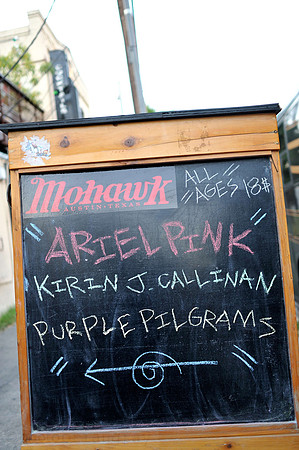 Mohawk
AUSTIN • TEXAS
ALL
AGES 18$
ARIEL PINK
KIRIN J. CALLINAN
PURPLE PILGRAMS